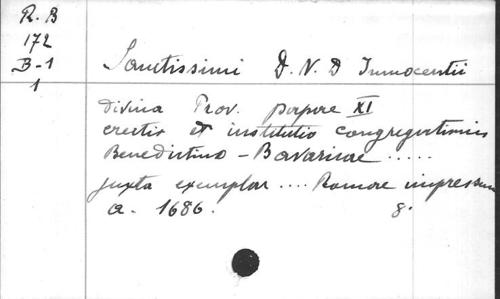 R. B
172
B-1
1
Sanctissimi D. N. D Innocentii
divina Prov. papae XI
erectio et institutio congregationis
Benedictino - Bavaricae .....
juxta exemplar .... Romae impressum
a. 1686. 8.